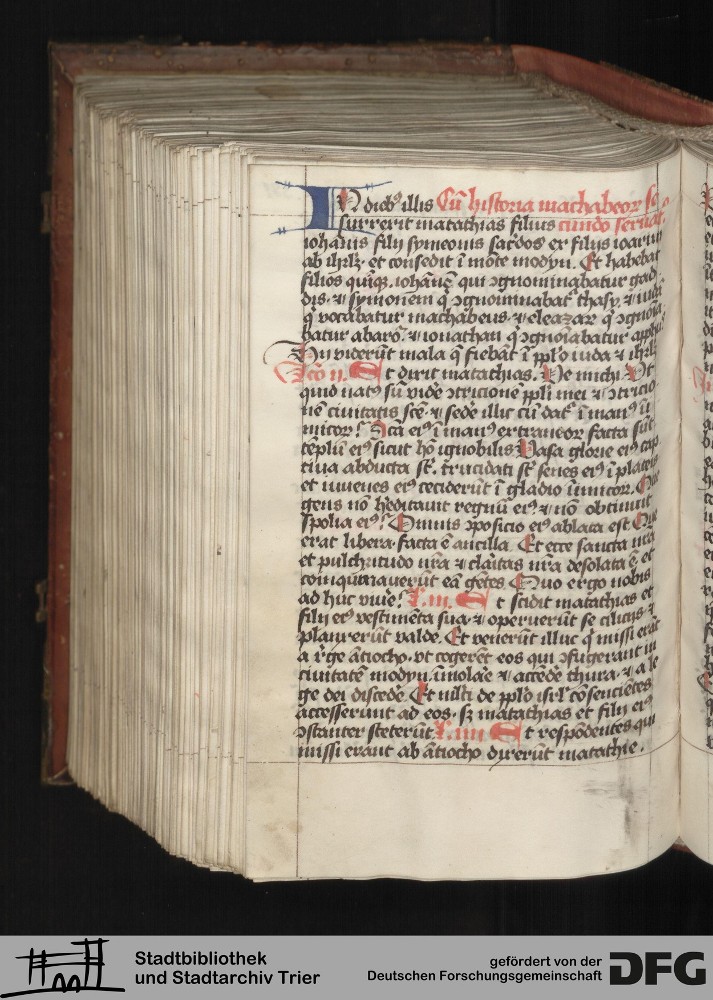 IN dieb⁹ illis Cū historia machabeor
surrexit matathias filius cūndo seruat̄
iohānis filij symeonis sac̄dos ex filijs ioarim
ab ihrl̄z · et consedit ī mōte modyn. Et habebat
filios quīq̨. iohānē qui ꝯgnominabatur gad
dis · ⁊ symonem q̄ ꝯgnominabat᷑ thasy. ⁊ iudā
q̄ vocabatur machabeus · ⁊ eleazar q̄ ꝯgnoīa
batur abarō. ⁊ ionathan q̄ ꝯgnoīabatur apph⁹
Hij viderūt mala q̄ fiebāt ī ppl̄o iuda ⁊ ihrl̄z
Lcō ii. Et dixit matathias. Ve michi. Vt
quid nat⁹ sū vide᷑ ꝯtricionē ppl̄i mei ⁊ ꝯtricio
nē ciuitatis scē · ⁊ sede᷑ illic cū dat᷑ ī man⁹ ī
imicor᷑ Scā ei⁹ ī man⁹ extraneor facta sūt
tēplū ei⁹ sicut hō ignobilis Vasa glorie ei⁹ cap
tiua abducta st̄. trucidati st̄ senes ei⁹ ī plateis
et iuuenes ei⁹ ceciderūt ī gladio inimicor. Que
gens nō hereditauit regnū ei⁹ ⁊ nō obtinuit
spolia ei⁹ Omnis ꝯposicio ei⁹ ablata est Que
erat libera · facta ē ancilla. Et ecce sancta nr̄a
et pulchritudo nr̄a ⁊ claritas nr̄a desolata ē et
coinquinauerūt eā gētes Quo ergo nobis
ad huc viue᷑ L. iii. Et scidit matathias et
filij ei⁹ vestimēta sua · ⁊ operuerūt se cilicijs ⁊
planxerūt valde. Et venerūt illuc q̄ missi erāt
a rege ātiocho · vt cogerēt eos qui ꝯfugerant in
ciuitatē modyn · īmola᷑e ⁊ accēde᷑ thura · ⁊ a le
ge dei discede᷑ Et mlti de ppl̄o isrl̄ cōsencie᷑tes
accesserunt ad eos · sz matathias et filij ei⁹
ꝯstanter steterūt L. iiii Et respōdentes qui
missi erant ab ātiocho dixerūt matathie.
Stadtbibliothek
und Stadtarchiv Trier
gefördert von der
Deutschen Forschungsgemeinschaft DFG